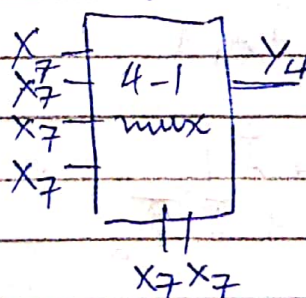 X7
X7
X7
X7
4-1
mux
Y4
X7 X7